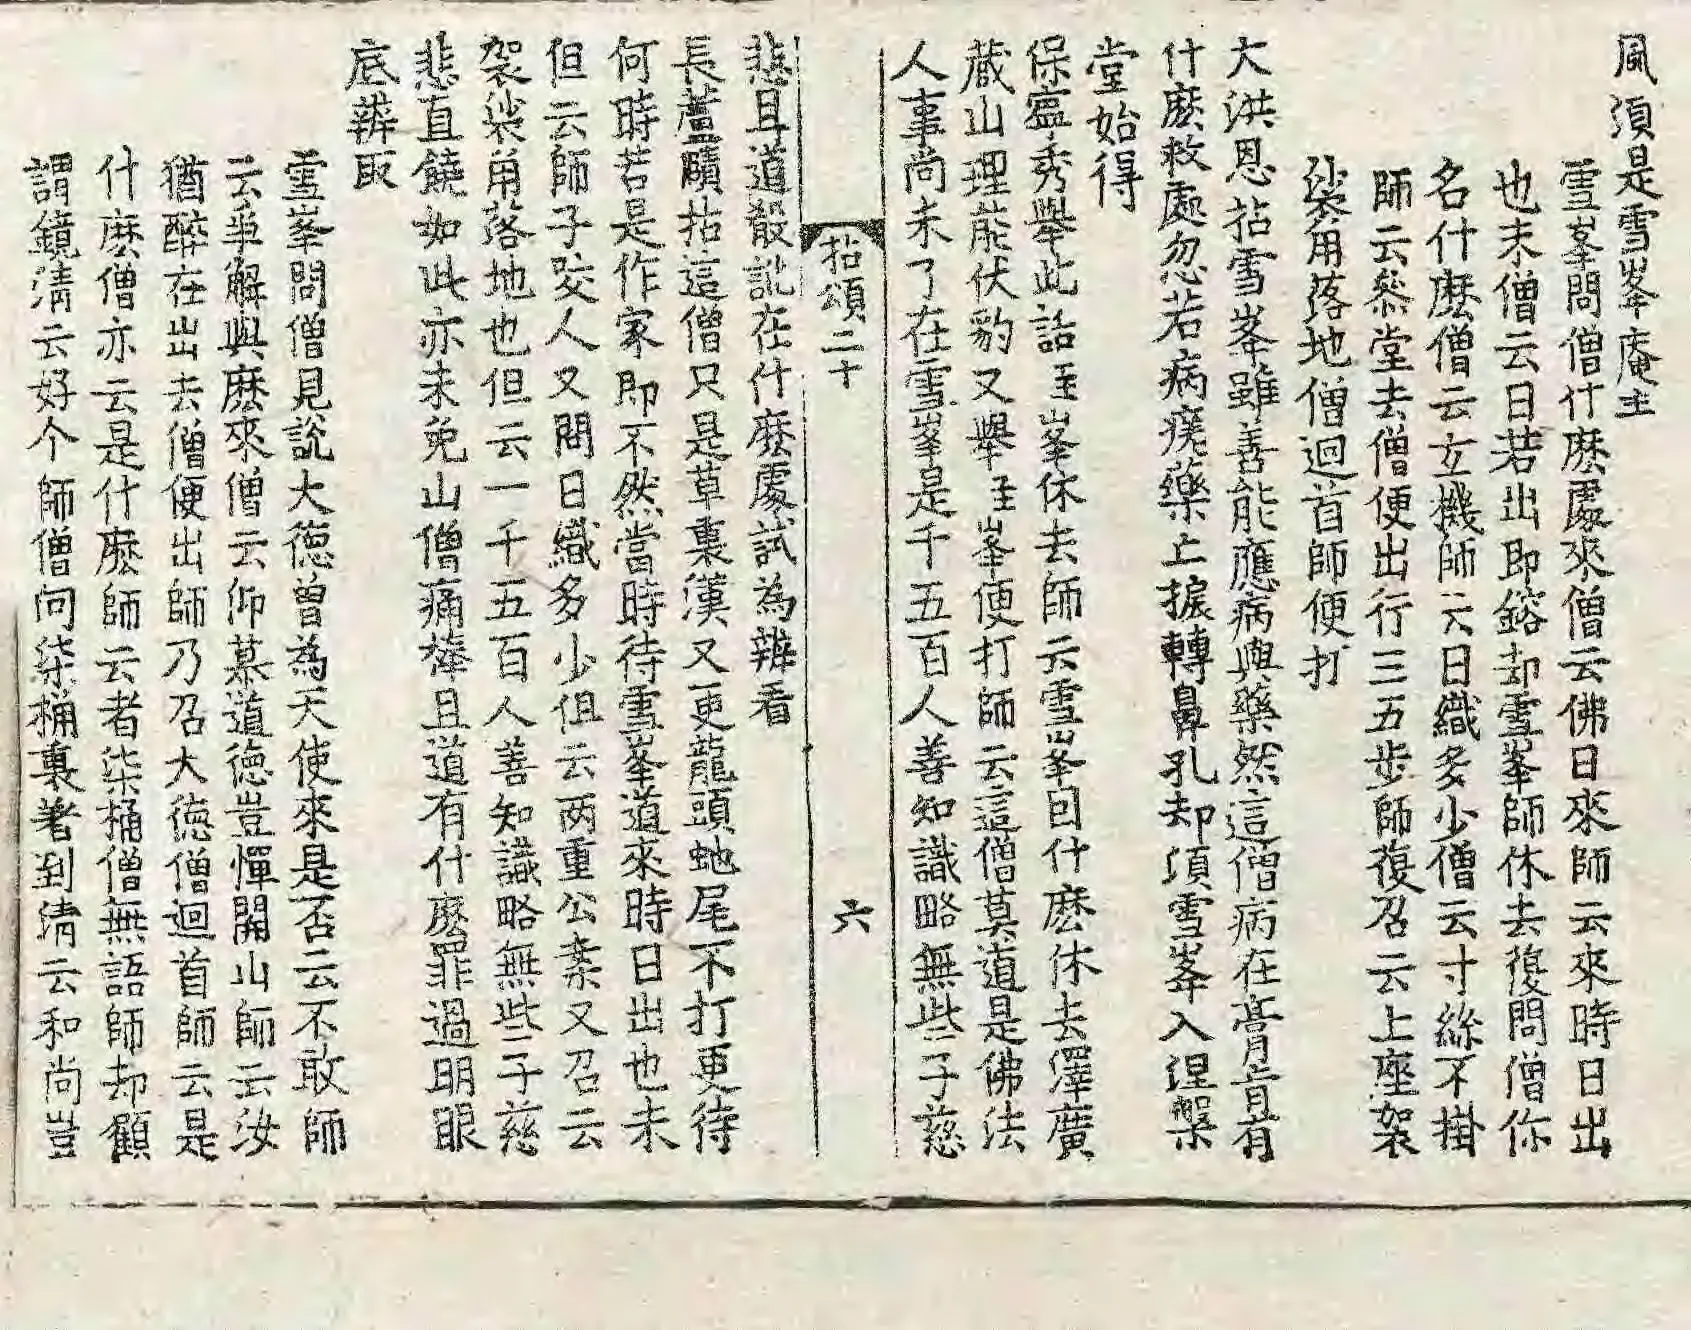 風須是雪峯庵主
雪峯問僧什麽處來僧云佛日來師云來時日出
也未僧云日若出即鎔却雪峯師休去復問僧你
名什麽僧云玄機師云日織多少僧云寸絲不掛
師云叅堂去僧便出行三五步師復召云上座袈
裟角落地僧迴首師便打
大洪恩拈雪峯雖善能應病與藥然這僧病在膏肓有
什麽救處忽若病瘥藥上捩轉鼻孔却項雪峯入涅槃
堂始得
保寧秀舉此話至峯休去師云雪峯因什麽休去澤廣
藏山理能伏豹又舉至峯便打師云這僧莫道是佛法
人事尚未了在雪峯是千五百人善知識略無些子慈
拈頌二十 六
悲且道殽訛在什麽處試為辨看
長蘆賾拈這僧只是草裏漢又更龍頭虵尾不打更待
何時若是作家即不然當時待雪峯道來時日出也未
但云師子咬人又問日織多少但云两重公案又召云
袈裟角落地也但云一千五百人善知識略無些子慈
悲直饒如此亦未免山僧痛棒且道有什麽罪過明眼
底辨取
雪峯問僧見說大德曽為天使來是否云不敢師
云爭解與麽來僧云仰慕道德豈憚開山師云汝
猶醉在出去僧便出師乃召大德僧迴首師云是
什麽僧亦云是什麽師云者柒桶僧無語師却顧
謂鏡清云好个師僧向柒桶裏著到清云和尚豈